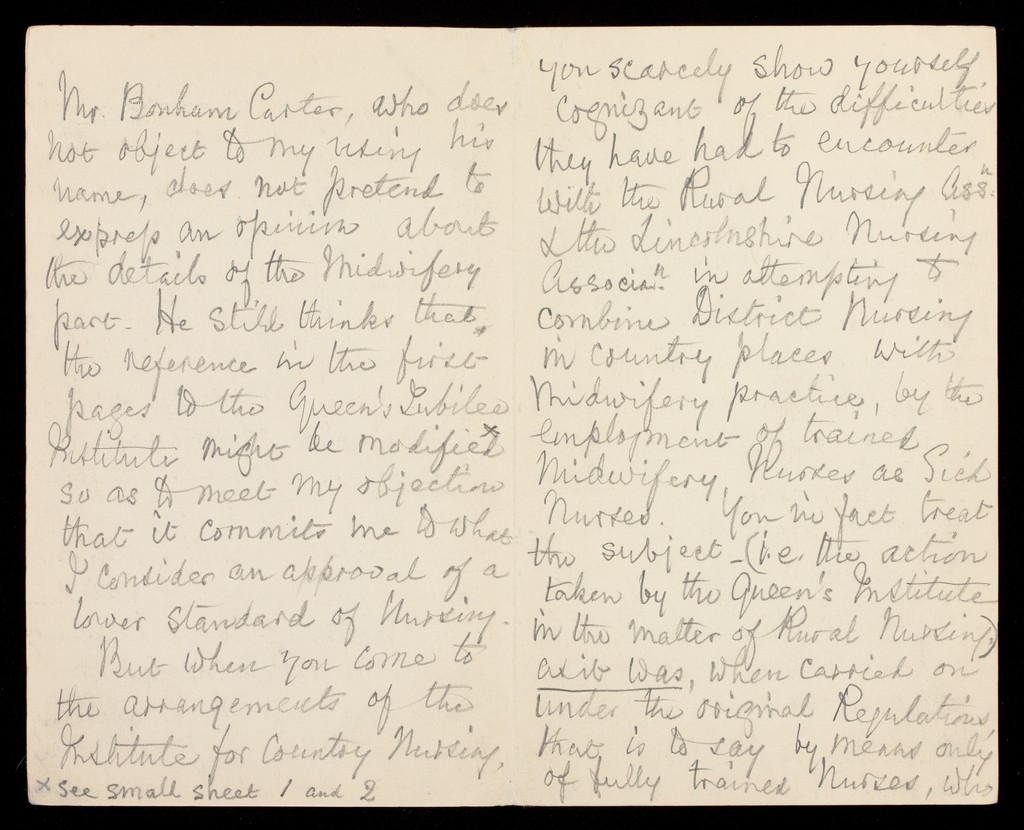 Mr. Bonham Carter, who does
not object to my using his
name, does not pretend to
express an opinion about
the details of the Midwifery
part. He still thinks that
the reference in the first
pages to the Queen's Jubilee
Institute might be modified x
so as to meet my objection
that it commits me to what
I consider an approval of a
lower standard of Nursing.
But when you come to
the arrangements of the
Institute for Country Nursing,
x see small sheet 1 and 2
you scarcely show yourself
cognizant of the difficulties
they have had to encounter
with the Rural Nursing Assn.
& the Lincolnshire Nursing
Associan. in attempting to
combine District Nursing
in country places with
Midwifery practice, by the
employment of trained
Midwifery Nurses as Sick
Nurses. You in fact treat
the subject - (i.e. the action
taken by the Queen's Institute
in the matter of Rural Nursing,)
as it was, when carried on
under the original Regulations
that is to say by means only
of fully trained Nurses, who